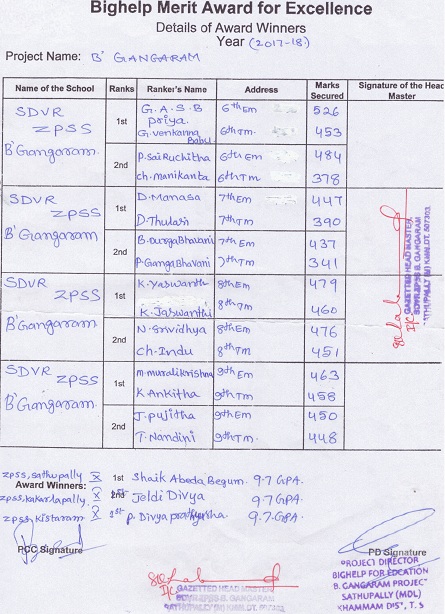 Bighelp Merit Award for Excellence
Details of Award Winners
Year (2017-18)
Project Name: B' GANGARAM
Name of the School Ranks Ranker's Name Address Marks Secured Signature of the Head Master
SDVR ZPSS B'Gangaram.
1st G.A.S.B priya. 6th Em 526
G.Venkanna Babu 6th Tm. 453
2nd P.Sai Ruchitha 6th Em 484
ch.manikanta 6th Tm 378
SDVR ZPSS B'Gangaram
1st D.Manasa 7th Em 447
D.Thulasi 7th Tm 390
2nd B.DurgaBhavani 7th Em 437
P.GangaBhavani 7th Tm 341
SDVR ZPSS B'Gangaram
1st K.Yaswanth 8th Em 479
K.Jaswanthi 8th Tm 460
2nd N.Srividhya 8th Em 476
Ch.Indu 8th Tm 451
SDVR ZPSS B'Gangaram.
1st M.muralikrishna 9th Em 463
K Ankitha 9th Tm 458
2nd J.pujitha 9th Em 450
T.Nandini 9th Tm. 448
GAZETTED HEAD MASTER
SDVR ZPSS B. GANGARAM
SATHUPALLY (M) KMM.DT. 507303
Award Winners:
ZPSS, Sathupally X 1st Shaik Abeda Begum. 9.7 GPA.
ZPSS, Kakarlapally. X Jeldi Divya 9.7 GPA.
ZPSS, Kistaram X P. Divya 9.7. GPA.
PCC Signature
PD Signature
GAZETTED HEAD MASTER
SDVR ZPSS B. GANGARAM
SATHUPALLY (M) KMM.DT. 507303
PROJECT DIRECTOR
BIGHELP FOR EDCATION
B. GANGARAM PROJEC
SATHUPALLY (MDL)
KHAMMAM DIS", T. S